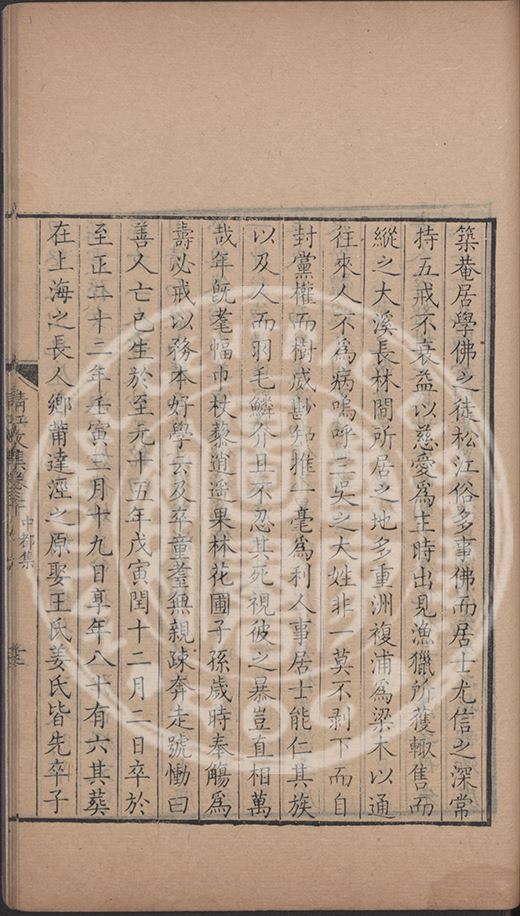 築菴居學佛之徒松江俗多事佛而居士尤信之深常
持五戒不衰益以慈愛爲主時出見漁獵所獲輙售而
縱之大溪長林間所居之地多重洲複浦爲梁木以通
往來人不爲病嗚呼三吳之大姓非一莫不剥下而自
封黨權而樹威尠知推一毫爲利人事居士能仁其族
以及人而羽毛鱗介且不忍其死視彼之暴豈直相萬
哉年旣耄幅巾杖藜逍遥果林花圃子孫歲時奉觴爲
壽必戒以務本好學云及卒童耋無親疎奔走號慟曰
善人亡已生於至元十五年戊寅閏十二月二日卒於
至正二十二年壬寅三月十九日享年八十有六其葬
在上海之長人鄉莆達涇之原娶王氏姜氏皆先卒子
清江文集卷
中都集